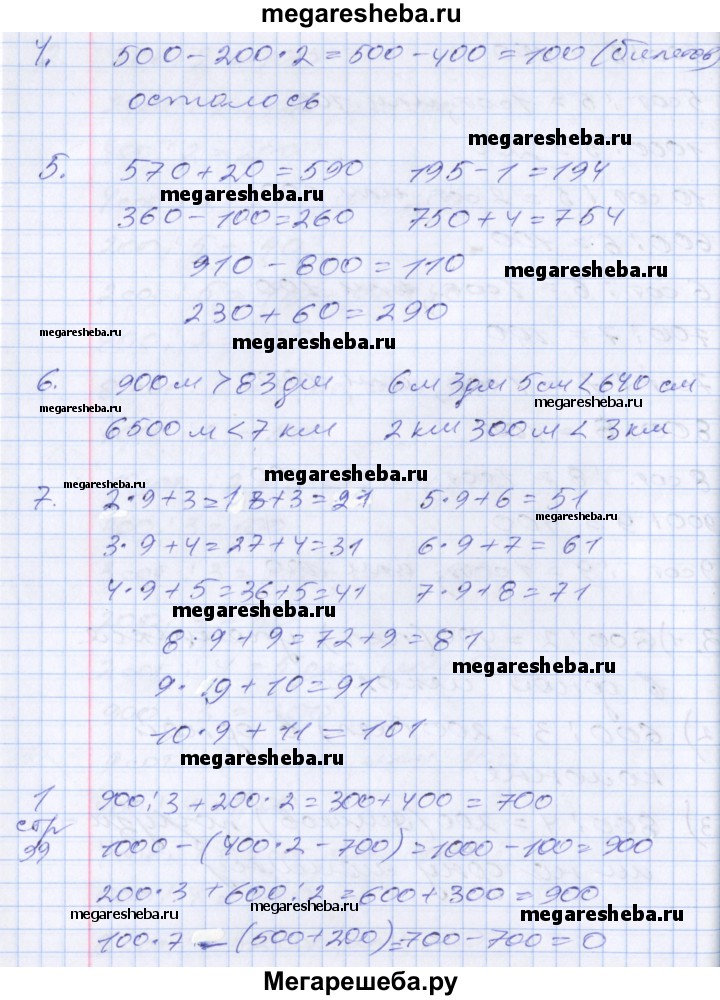 megaresheba.ru
4. 500 - 200·2 = 500 - 400 = 100 (билетов)
осталось
megaresheba.ru
5. 570 + 20 = 590 195 - 1 = 194
megaresheba.ru
360 - 100 = 260 750 + 4 = 754
910 - 800 = 110
megaresheba.ru
230 + 60 = 290
megaresheba.ru
megaresheba.ru
6. 900 м > 83 дм 6 м 3 дм 5 см < 640 см
megaresheba.ru
megaresheba.ru
6500 м < 7 км 2 км 300 м < 3 км
megaresheba.ru
megaresheba.ru
7. 2·9 + 3 = 18 + 3 = 21 5·9 + 6 = 51
megaresheba.ru
3·9 + 4 = 27 + 4 = 31 6·9 + 7 = 61
4·9 + 5 = 36 + 5 = 41 7·9 + 8 = 71
megaresheba.ru
8·9 + 9 = 72 + 9 = 81
megaresheba.ru
9·9 + 10 = 91
10·9 + 11 = 101
megaresheba.ru
1 900:3 + 200·2 = 300 + 400 = 700
стр
99 1000 - (400·2 - 700) = 1000 - 100 = 900
200·3 + 600:2 = 600 + 300 = 900
megaresheba.ru
megaresheba.ru
100·7 - (500 + 200) = 700 - 700 = 0
Мегарешеба.ру